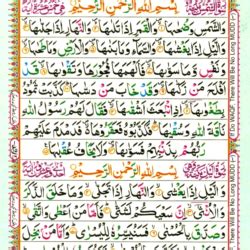 بِسْمِ اللهِ الرَّحْمٰنِ الرَّحِيْمِ
وَالشَّمْسِ وَضُحٰىهَا وَالْقَمَرِ اِذَا تَلٰىهَا وَالنَّهَارِ اِذَا جَلّٰىهَا
وَالَّيْلِ اِذَا يَغْشٰىهَا وَالسَّمَآءِ وَمَا بَنٰىهَا وَالْاَرْضِ وَمَا طَحٰىهَا
وَنَفْسٍ وَّمَا سَوّٰىهَا فَاَلْهَمَهَا فُجُوْرَهَا وَتَقْوٰىهَا قَدْ
اَفْلَحَ مَنْ زَكّٰىهَا وَقَدْ خَابَ مَنْ دَسّٰىهَا كَذَّبَتْ ثَمُوْدُ
بِطَغْوٰىهَا اِذِ انْۢبَعَثَ اَشْقٰىهَا فَقَالَ لَهُمْ رَسُوْلُ اللهِ
نَاقَةَ اللهِ وَسُقْيٰهَا فَكَذَّبُوْهُ فَعَقَرُوْهَا فَدَمْدَمَ عَلَيْهِمْ
رَبُّهُمْ بِذَنْۢبِهِمْ فَسَوّٰىهَا وَلَا يَخَافُ عُقْبٰهَا
بِسْمِ اللهِ الرَّحْمٰنِ الرَّحِيْمِ
وَالَّيْلِ اِذَا يَغْشٰى وَالنَّهَارِ اِذَا تَجَلّٰى وَمَا خَلَقَ الذَّكَرَ
وَالْاُنْثٰى اِنَّ سَعْيَكُمْ لَشَتّٰى فَاَمَّا مَنْ اَعْطٰى وَاتَّقٰى
وَصَدَّقَ بِالْحُسْنٰى فَسَنُيَسِّرُهٗ لِلْيُسْرٰى وَاَمَّا مَنْۢ
Do WAQF There Will Be No Long MUDD (~)